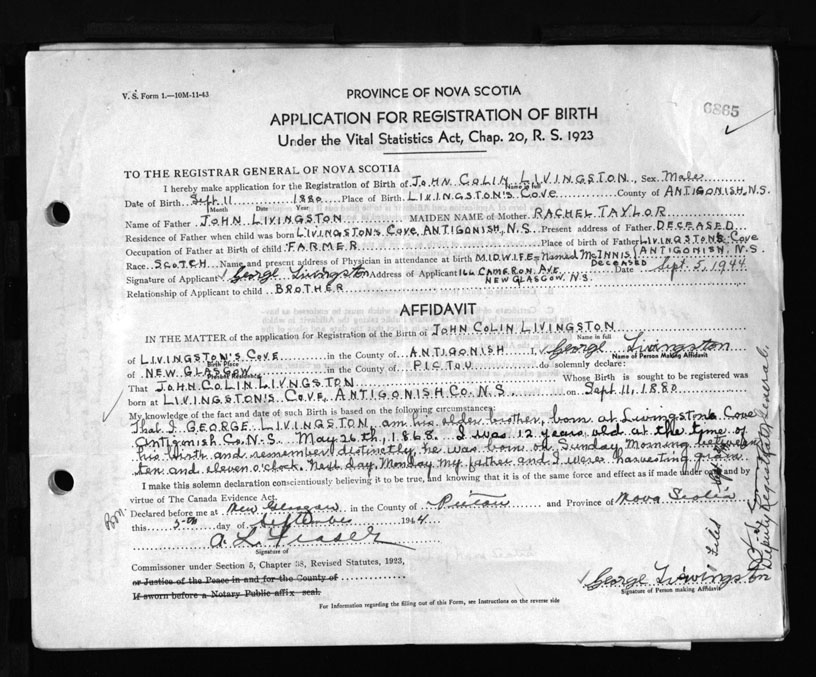 V. S. Form 1.—10M-11-43
PROVINCE OF NOVA SCOTIA
6865
APPLICATION FOR REGISTRATION OF BIRTH
Under the Vital Statistics Act, Chap. 20, R. S. 1923
TO THE REGISTRAR GENERAL OF NOVA SCOTIA
I hereby make application for the Registration of Birth of JOHN COLIN LIVINGSTON Sex Male
Name in full
Date of Birth Sept. 11 1880 Place of Birth LIVINGSTON'S COVE County of ANTIGONISH, N.S.
Month Date Year
Name of Father JOHN LIVINGSTON MAIDEN NAME of Mother RACHEL TAYLOR
Residence of Father when child was born LIVINGSTON'S COVE, ANTIGONISH, N.S. Present address of Father DECEASED
Occupation of Father at Birth of child FARMER Place of Birth of Father LIVINGSTON'S COVE ANTIGONISH, N.S.
Race SCOTCH Name and present address of Physician in attendance at birth MIDWIFE - Named McINNIS DECEASED
Signature of Applicant George Livingston Address of Applicant 166 CAMERON AVE NEW GLASGOW, N.S. Date Sept. 5, 1944
Relationship of Applicant to child BROTHER
AFFIDAVIT
IN THE MATTER of the application for Registration of the Birth of JOHN COLIN LIVINGSTON
Name in full
of LIVINGSTON'S COVE in the County of ANTIGONISH I, George Livingston
Birth Place Name of Person Making Affidavit
of NEW GLASGOW in the County of PICTOU do solemnly declare:
That JOHN COLIN LIVINGSTON Whose Birth is sought to be registered was
born at LIVINGSTON'S COVE, ANTIGONISH CO. N.S. on Sept 11, 1880
My knowledge of the fact and date of such Birth is based on the following circumstances:
That I GEORGE LIVINGSTON, am his older brother, born at Livingston's Cove
Antigonish Co. N.S. May 26th, 1868. I was 12 years old at the time of
his birth and remember distinctly, he was born on Sunday Morning between
ten and eleven o'clock. Next day, Monday my father and I were harvesting grain
I make this solemn declaration conscientiously believing it to be true, and knowing that it is of the same force and effect as if made under oath and by
virtue of The Canada Evidence Act.
Declared before me at New Glasgow in the County of Pictou and Province of Nova Scotia
this 5th day of September 1944
A. L. Fraser
Signature of
Commissioner under Section 5, Chapter 38, Revised Statutes, 1923,
or Justices of the Peace in and for the County of
If sworn before a Notary Public affix seal.
George Livingston
Signature of Person making Affidavit
For Information regarding the filling out of this Form, see Instructions on the reverse side
Filed
Deputy Registrar General.